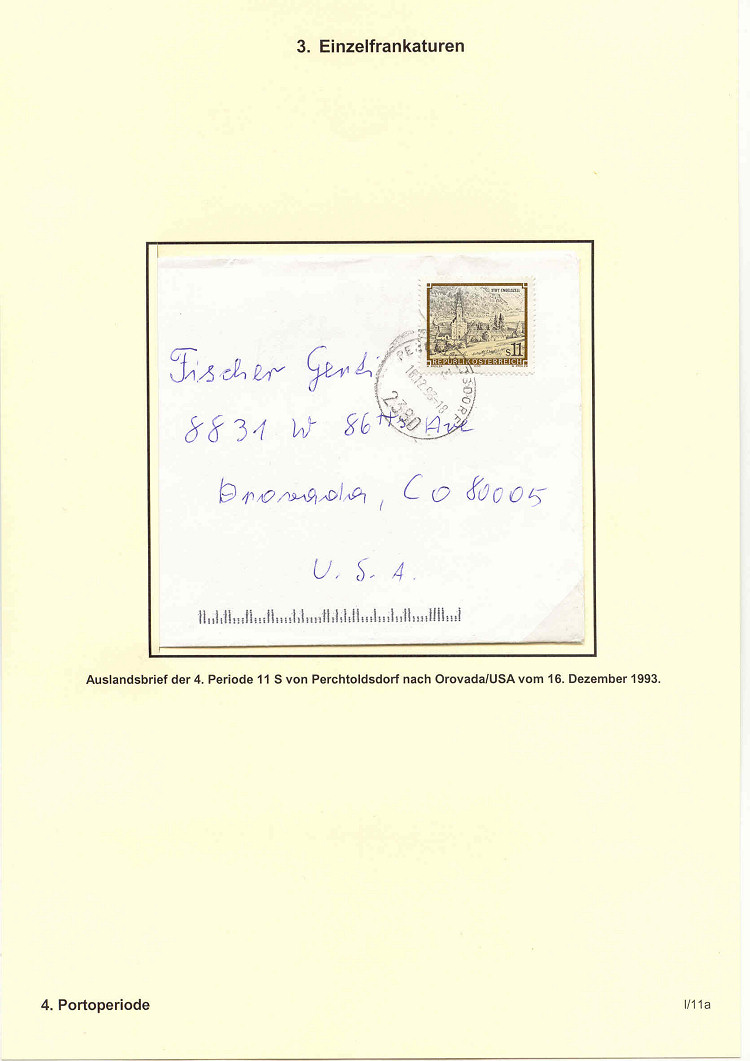 3. Einzelfrankaturen
STIFT ENGELSZELL
S 11
REPUBLIK ÖSTERREICH
2380
Fischer Gerti
8831 W 86th Ave
Orovada, CO 80005
U. S. A.
Auslandsbrief der 4. Periode 11 S von Perchtoldsdorf nach Orovada/USA vom 16. Dezember 1993.
4. Portoperiode
I/11a